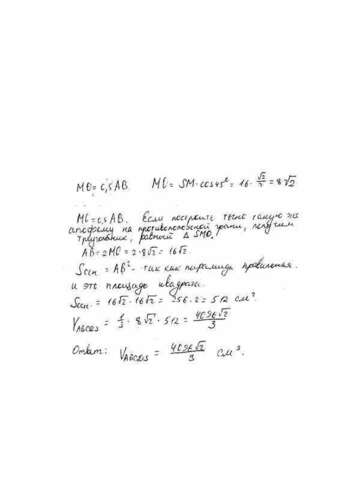 MO = 0,5AB. MO = SM·cos45° = 16·√2/2 = 8√2
MO = 0,5 AB. Если построить точно такую же
апофему на противоположной грани, получим
треугольник, равный Δ SMO.
AB = 2MO = 2·8√2 = 16√2.
Sосн = AB² - так как пирамида правильная.
и это площадь квадрата.
Sосн. = 16√2 · 16√2 = 256·2 = 512 см².
VABCDS = 1/3 · 8√2 · 512 = 4096√2/3
Ответ: VABCDS = 4096√2/3 см³.